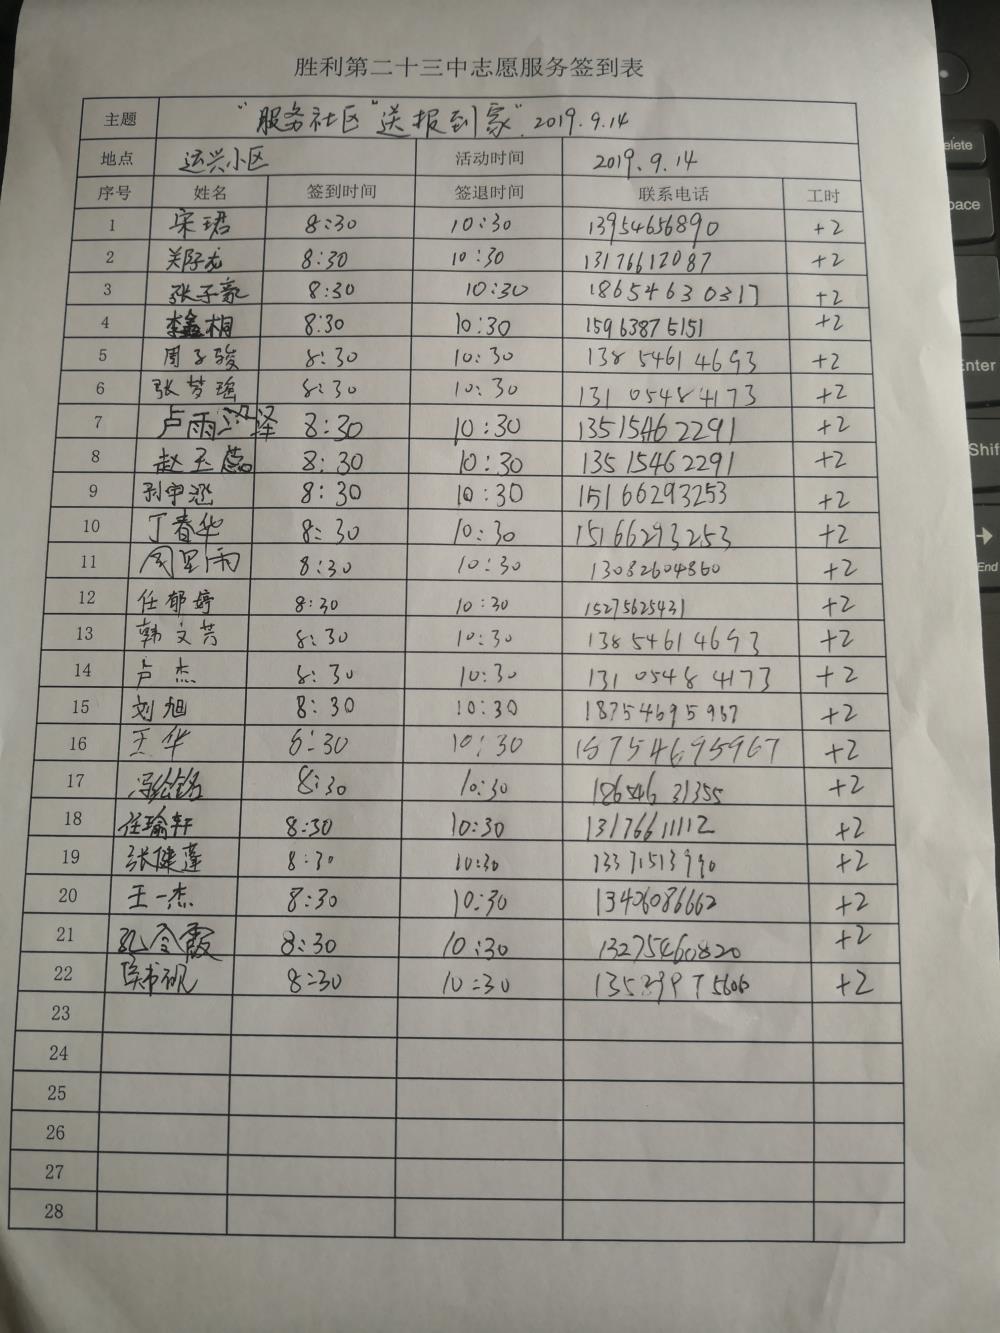 胜利第二十三中志愿服务签到表
主题 “服务社区”送报到家” 2019.9.14
地点 运兴小区 活动时间 2019.9.14
序号 姓名 签到时间 签退时间 联系电话 工时
1 宋珺 8:30 10:30 13954656890 +2
2 郑子龙 8:30 10:30 13176612087 +2
3 张子豪 8:30 10:30 18654630317 +2
4 李鑫桐 8:30 10:30 15963875151 +2
5 周子骏 8:30 10:30 13854614693 +2
6 张梦瑶 8:30 10:30 13105484173 +2
7 卢雨泽 8:30 10:30 13515462291 +2
8 赵玉蕊 8:30 10:30 13515462291 +2
9 孙申涵 8:30 10:30 15166293253 +2
10 丁春华 8:30 10:30 15166293253 +2
11 周星雨 8:30 10:30 13082604860 +2
12 任郁婷 8:30 10:30 15275625431 +2
13 韩文芳 8:30 10:30 13854614693 +2
14 卢杰 8:30 10:30 13105484173 +2
15 刘旭 8:30 10:30 18754695967 +2
16 王华 8:30 10:30 18754695967 +2
17 冯铭 8:30 10:30 18654631355 +2
18 任瑜轩 8:30 10:30 13176611112 +2
19 张健蓬 8:30 10:30 13371513990 +2
20 王一杰 8:30 10:30 13406086662 +2
21 孔令霞 8:30 10:30 13275460820 +2
22 侯书砚 8:30 10:30 +2
23
24
25
26
27
28
elete
pace
Enter
Shift
End